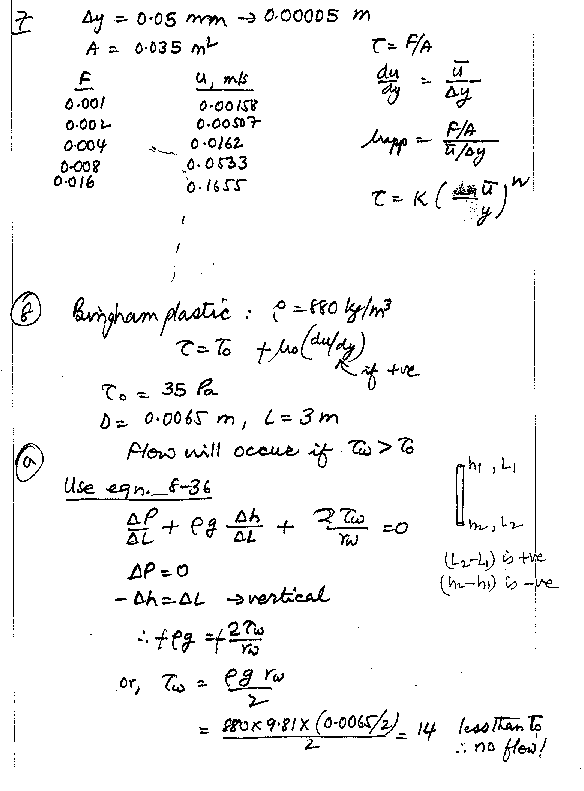 7 Δy = 0.05 mm → 0.00005 m
A = 0.035 m²
τ = F/A
F u, m/s
0.001 0.00158
0.002 0.00507
0.004 0.0162
0.008 0.0533
0.016 0.1655
du/dy = ū/Δy
μapp = (F/A)/(ū/Δy)
τ = K (ū/y)ⁿ
8 Bingham plastic : ρ = 880 kg/m³
τ = τ₀ + μ₀ (du/dy)
if +ve
τ₀ = 35 Pa
D = 0.0065 m, L = 3 m
Flow will occur if τw > τ₀
a
Use eqn. 8-36
ΔP/ΔL + ρg Δh/ΔL + 2τw/rw = 0
h₁, L₁
h₂, L₂
(L₂-L₁) is +ve
(h₂-h₁) is -ve
ΔP = 0
- Δh = ΔL → vertical
∴ +ρg = +2τw/rw
or, τw = ρg rw/2
= 880 x 9.81 x (0.0065/2)/2 = 14 less than τ₀
∴ no flow!